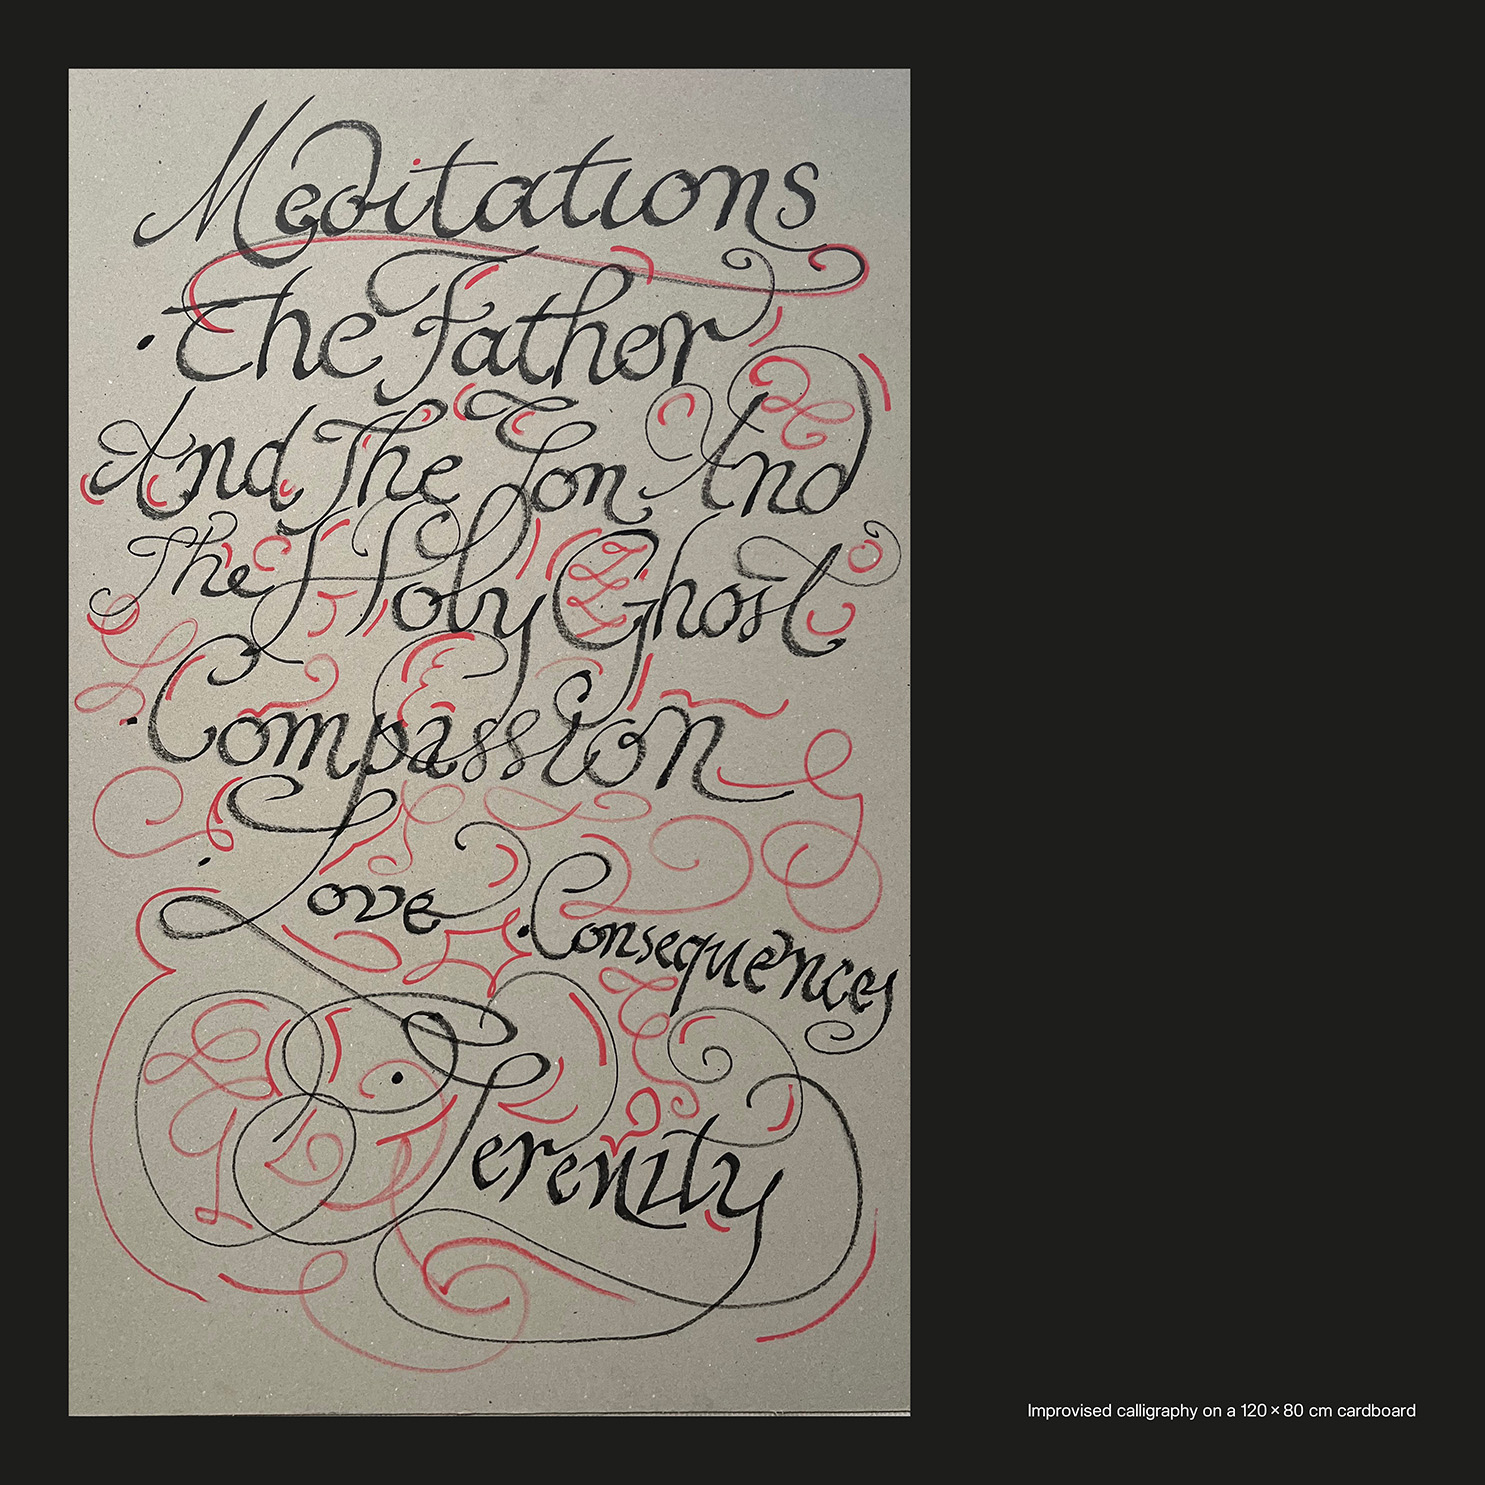 Meditations
The Father
And The Son And
The Holy Ghost
Compassion
Love
Consequences
Serenity
Improvised calligraphy on a 120 × 80 cm cardboard